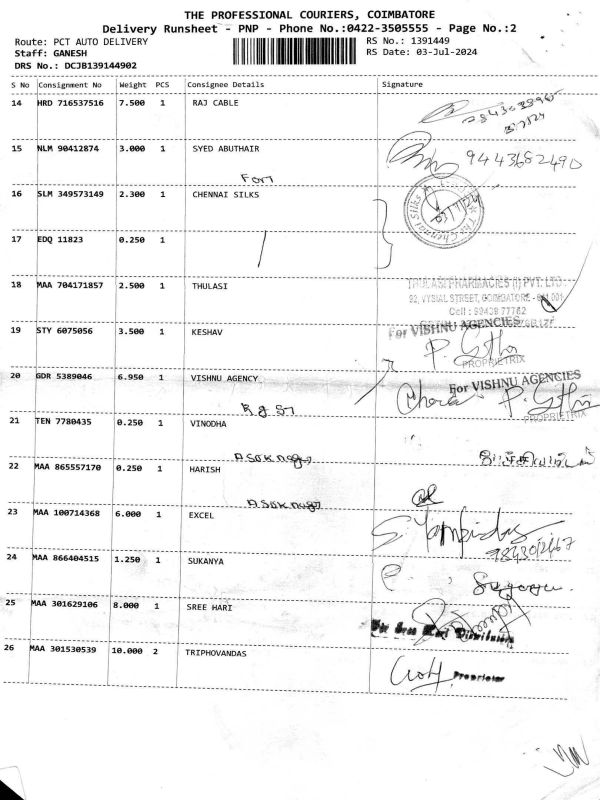 THE PROFESSIONAL COURIERS, COIMBATORE
Delivery Runsheet - PNP - Phone No.:0422-3505555 - Page No.:2
Route: PCT AUTO DELIVERY
RS No.: 1391449
Staff: GANESH
RS Date: 03-Jul-2024
DRS No.: DCJB139144902
S No Consignment No Weight PCS Consignee Details Signature
14 HRD 716537516 7.500 1 RAJ CABLE
15 NLM 90412874 3.000 1 SYED ABUTHAIR 9443682490
Fort
16 SLM 349573149 2.300 1 CHENNAI SILKS
The Chennai Silks
17 EDQ 11823 0.250 1
18 MAA 704171857 2.500 1 THULASI
THULASI PHARMACIES (I) PVT. LTD.
92, VYSIAL STREET, COIMBATORE - 641 001
Cell : 99438 77762
19 STY 6075056 3.500 1 KESHAV
For VISHNU AGENCIES
PROPRIETRIX
20 GDR 5389046 6.950 1 VISHNU AGENCY
For VISHNU AGENCIES
PROPRIETRIX
21 TEN 7780435 0.250 1 VINODHA
22 MAA 865557170 0.250 1 HARISH
23 MAA 100714368 6.000 1 EXCEL
24 MAA 866404515 1.250 1 SUKANYA
25 MAA 301629106 8.000 1 SREE HARI
26 MAA 301530539 10.000 2 TRIPHOVANDAS
Proprietor